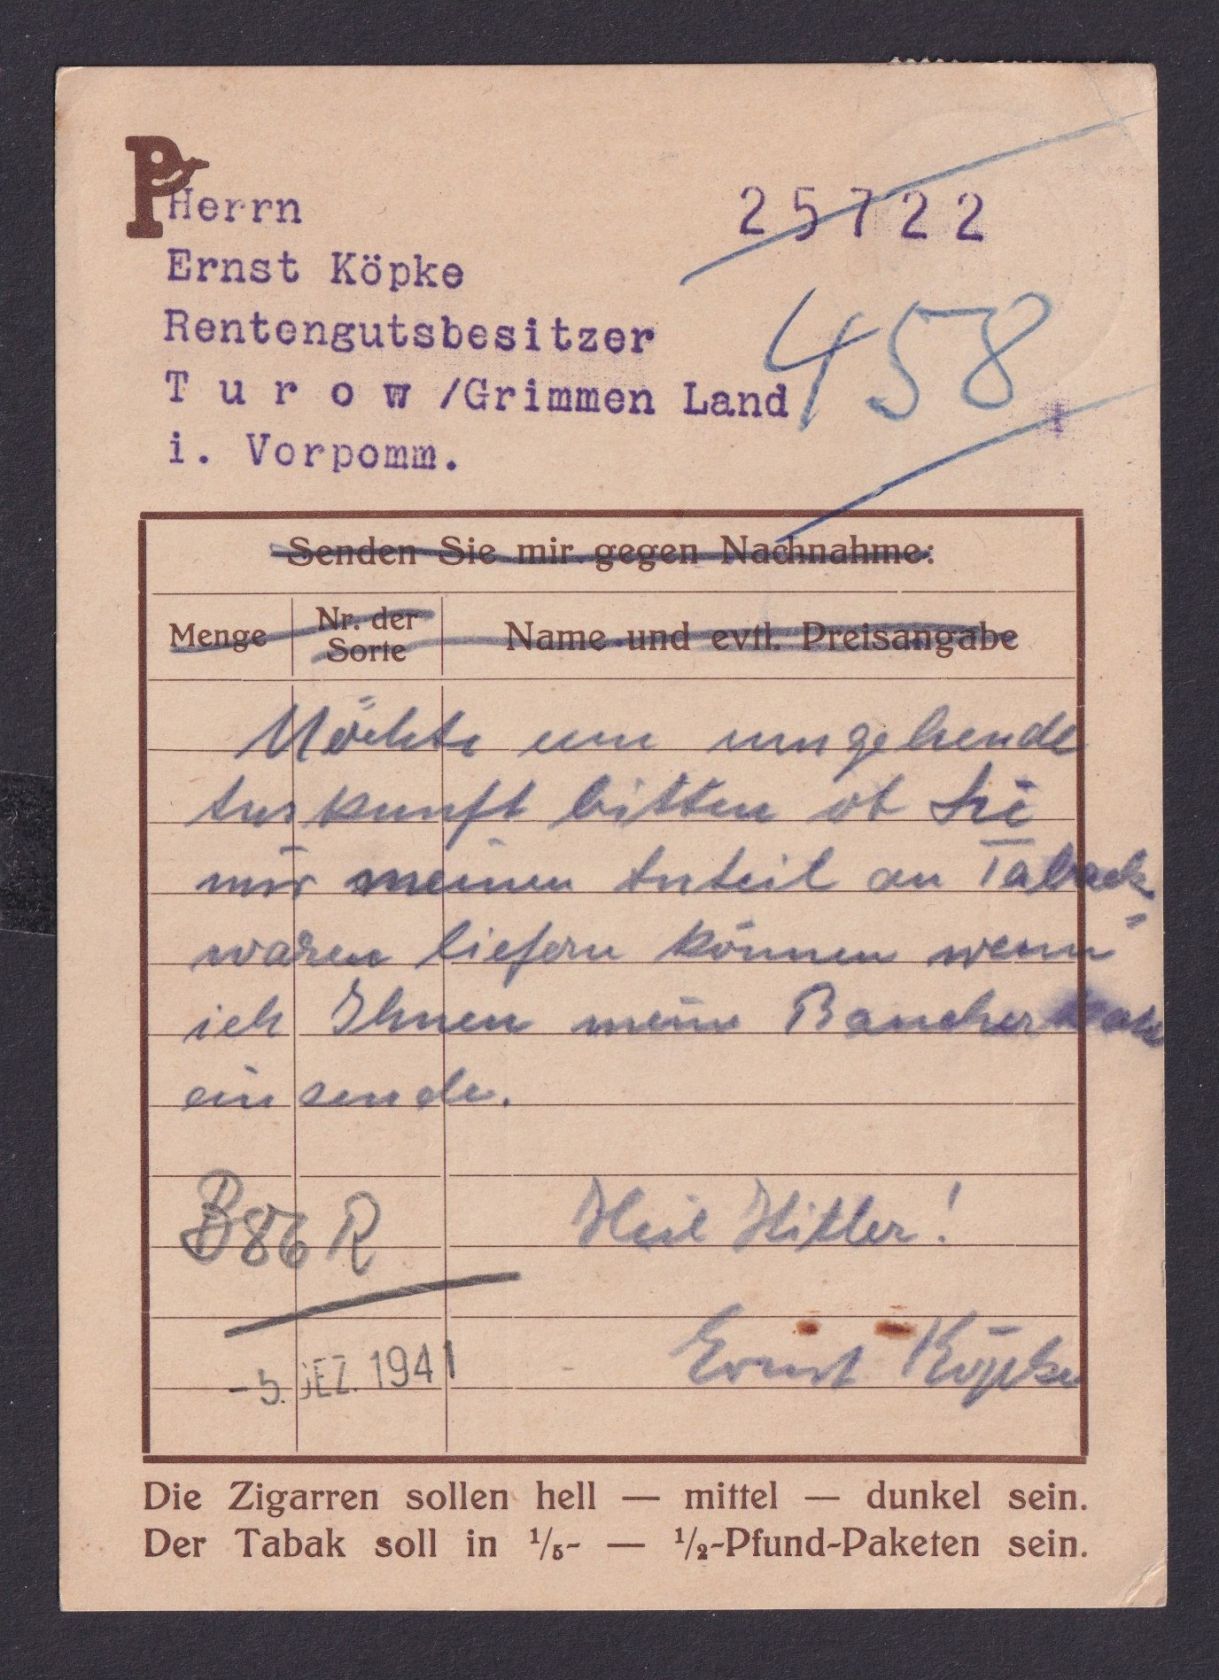 P
Herrn 25722
Ernst Köpke
Rentengutsbesitzer
458
T u r o w /Grimmen Land
i. Vorpomm.
Senden Sie mir gegen Nachnahme:
Menge Nr. der Sorte Name und evtl. Preisangabe
Möchte um umgehende
Auskunft bitten ob Sie
mir meinen Anteil an Taback
waren liefern können wenn
ich Ihnen meine
ein sende.
B86 R Heil Hitler!
Ernst Köpke
-5. DEZ. 1941
Die Zigarren sollen hell — mittel — dunkel sein.
Der Tabak soll in 1/5- — 1/2-Pfund-Paketen sein.